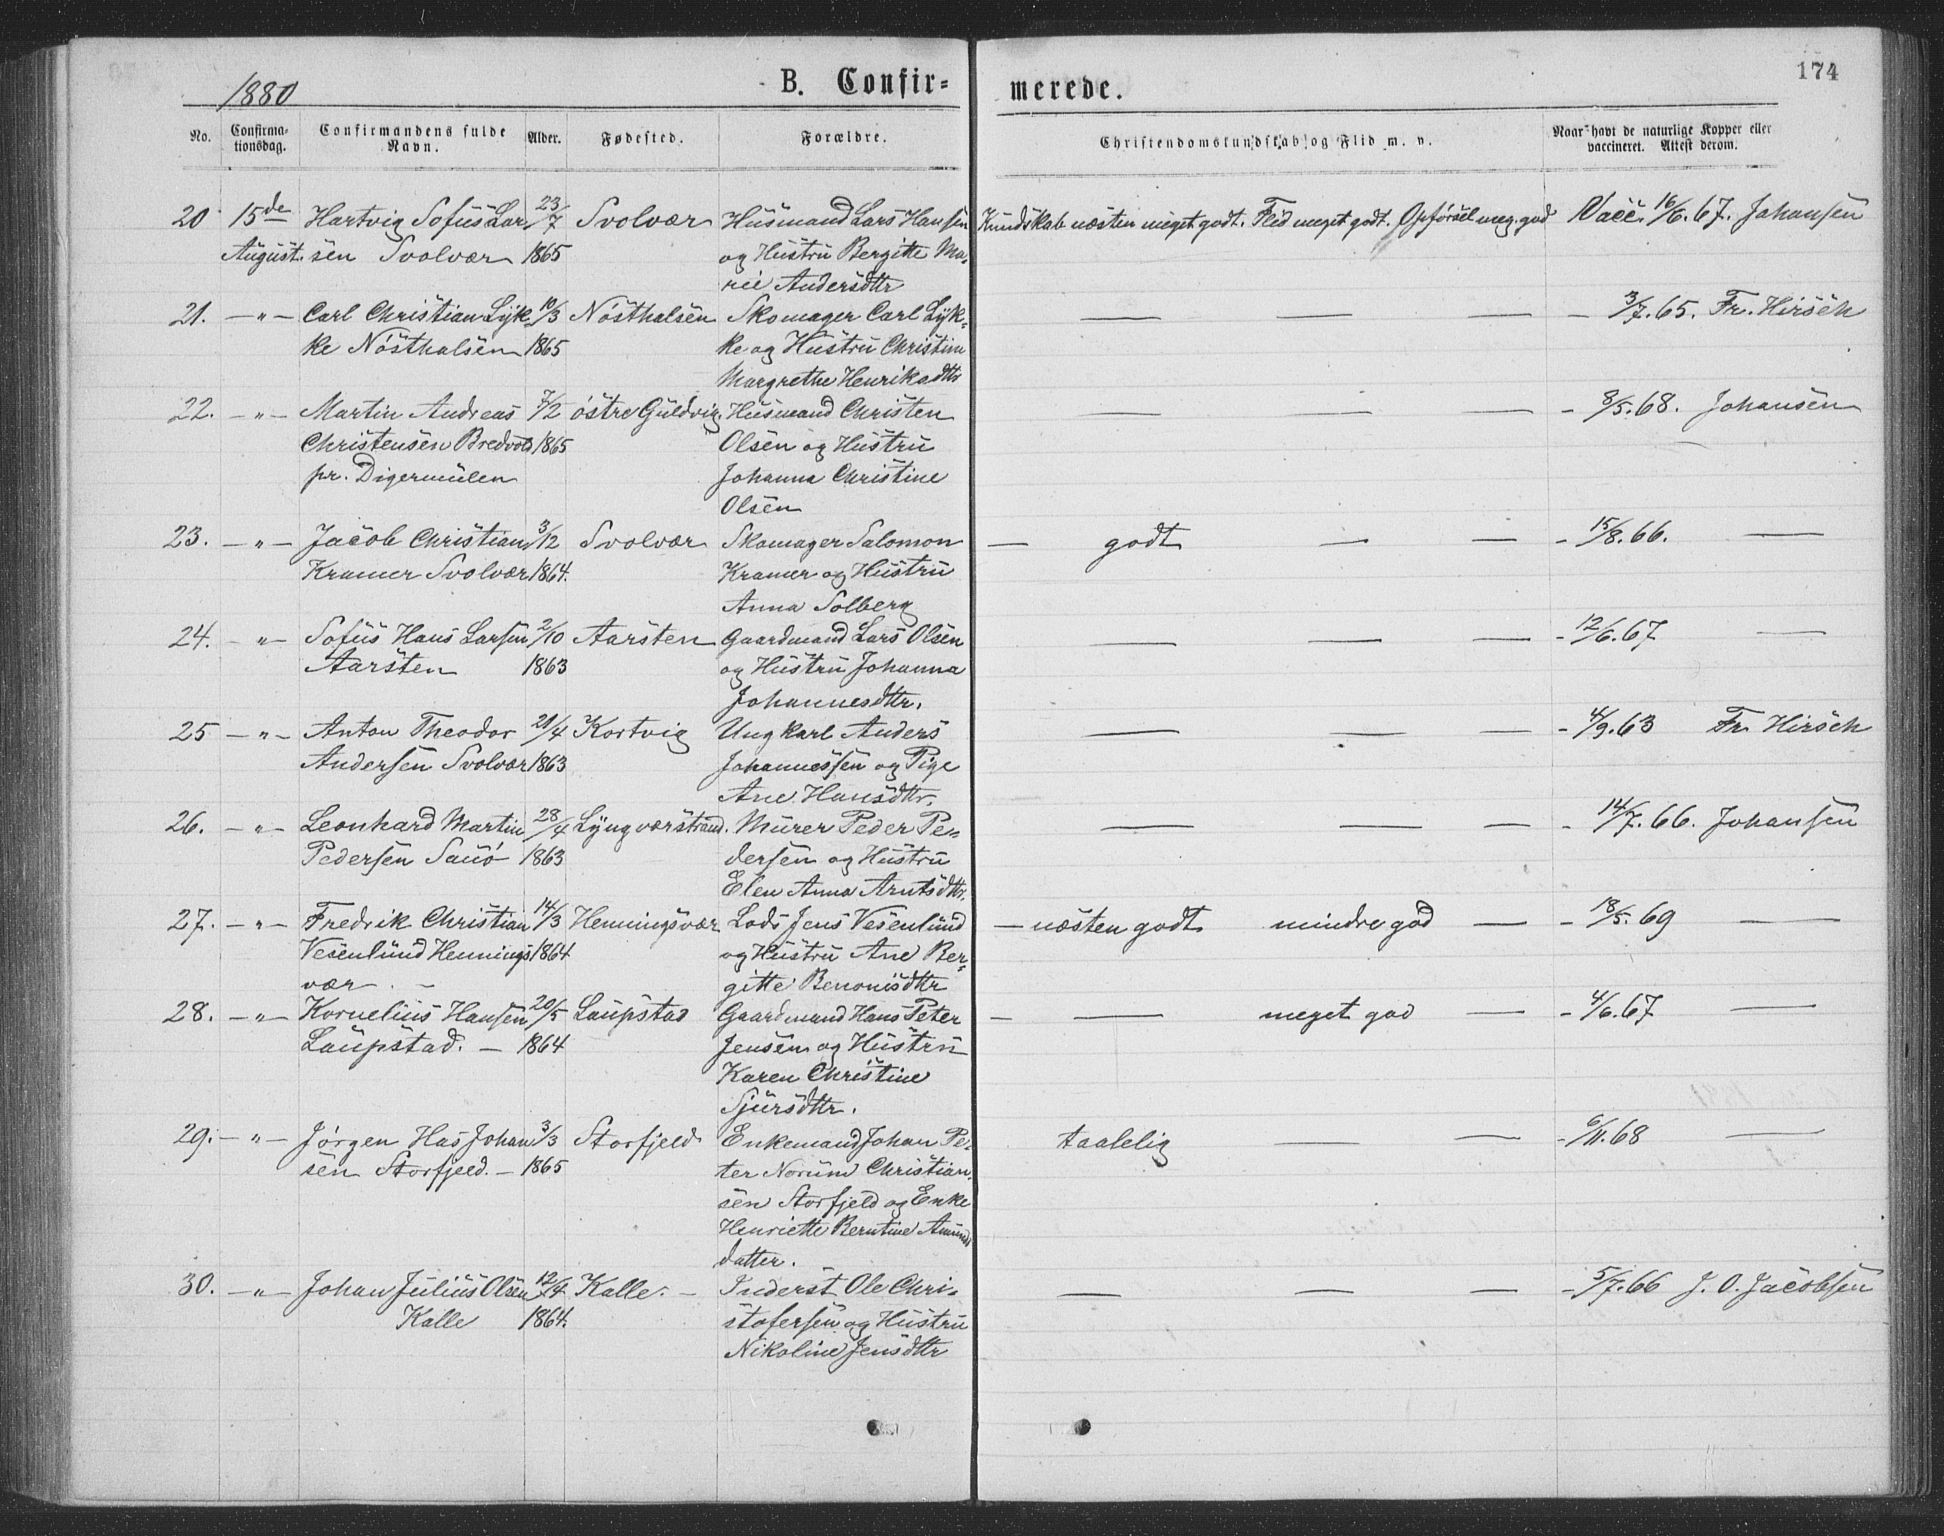 174
1880
B. Confir=
merede.
No.
Confirma-
tionsdag.
Confirmandens fulde
Navn.
Alder.
Fødested.
Forældre.
Christendomskundskab og Flid m. v.
Naar havt de naturlige Kopper eller
vaccineret. Attest derom.
20 15de Hartvig Sofus Lar 23/7 Svolvær Husmand Lars Hansen Kundskab næsten meget godt. Flid meget godt. Opførsel meg. god Vacc. 16/6. 67. Johansen
August. sen Svolvær 1865 og Hustru Bergitte Ma-
rie Andersdtr
21. — " — Carl Christian Lyk 10/3 Nösthalsen Skomager Carl Lyk- — — — — 3/7. 65. Fr. Hirsch
ke Nösthalsen 1865 ke og Hustru Christine
Margrethe Henriksdtr
22. — " — Martin Andreas 7/2 östre Guldvig Husmand Christen — — — - 8/5. 68. Johansen
Christensen Bredvold 1865 Olsen og Hustru
pr. Digermulen Johanna Christine
Olsen
23. — " — Jacob Christian 3/12 Svolvær Skomager Salomon — godt — — - 15/8. 66. —
Kramer Svolvær 1864. Kramer og Hustru
Anna Solberg
24. — " — Sofus Hans Larsen 2/10 Aarsten Gaardmand Lars Olsen — — — - 12/6. 67 —
Aarsten 1863 og Hustru Johanna
Johannesdtr.
25 — " — Anton Theodor 21/4 Kortvig Ungkarl Anders — — — - 4/9. 63 Fr. Hirsch
Andersen Svolvær 1863 Johannessen og Pige
Ane Hansdtr.
26. — " — Leonhard Martin 28/4 Lyngværstrand. Murer Peder Pe- — — — - 14/7. 66. Johansen
Pedersen Sauö 1863 dersen og Hustru
Elen Anna Arntsdtr.
27. — " — Fredrik Christian 14/3 Henningsvær Lods Jens Vesenlund — næsten godt mindre god — - 18/5. 69 —
Vesenlund Hennings 1864 og Hustru Ane Ber-
vær. — gitte Benonisdtr
28. — " — Kornelius Hansen 20/5 Laupstad Gaardmand Hans Peter — — meget god — - 4/6. 67 —
Laupstad. — 1864 Jensen og Hustru
Karen Christine
Sjursdtr.
29. — " — Jörgen Has Johan 3/3 Storfjeld Enkemand Johan Pe- taalelig — — - 6/11. 68 —
sen Storfjeld. — 1865 ter Norum Christian-
sen Storfjeld og Enke
Henriette Berntine Amunds
datter.
30. — " — Johan Julius Olsen 12/4 Kalle. — Inderst Ole Chri- — — — - 5/7. 66 J. O. Jacobsen
Kalle 1864. stofersen og Hustru
Nikoline Jensdtr